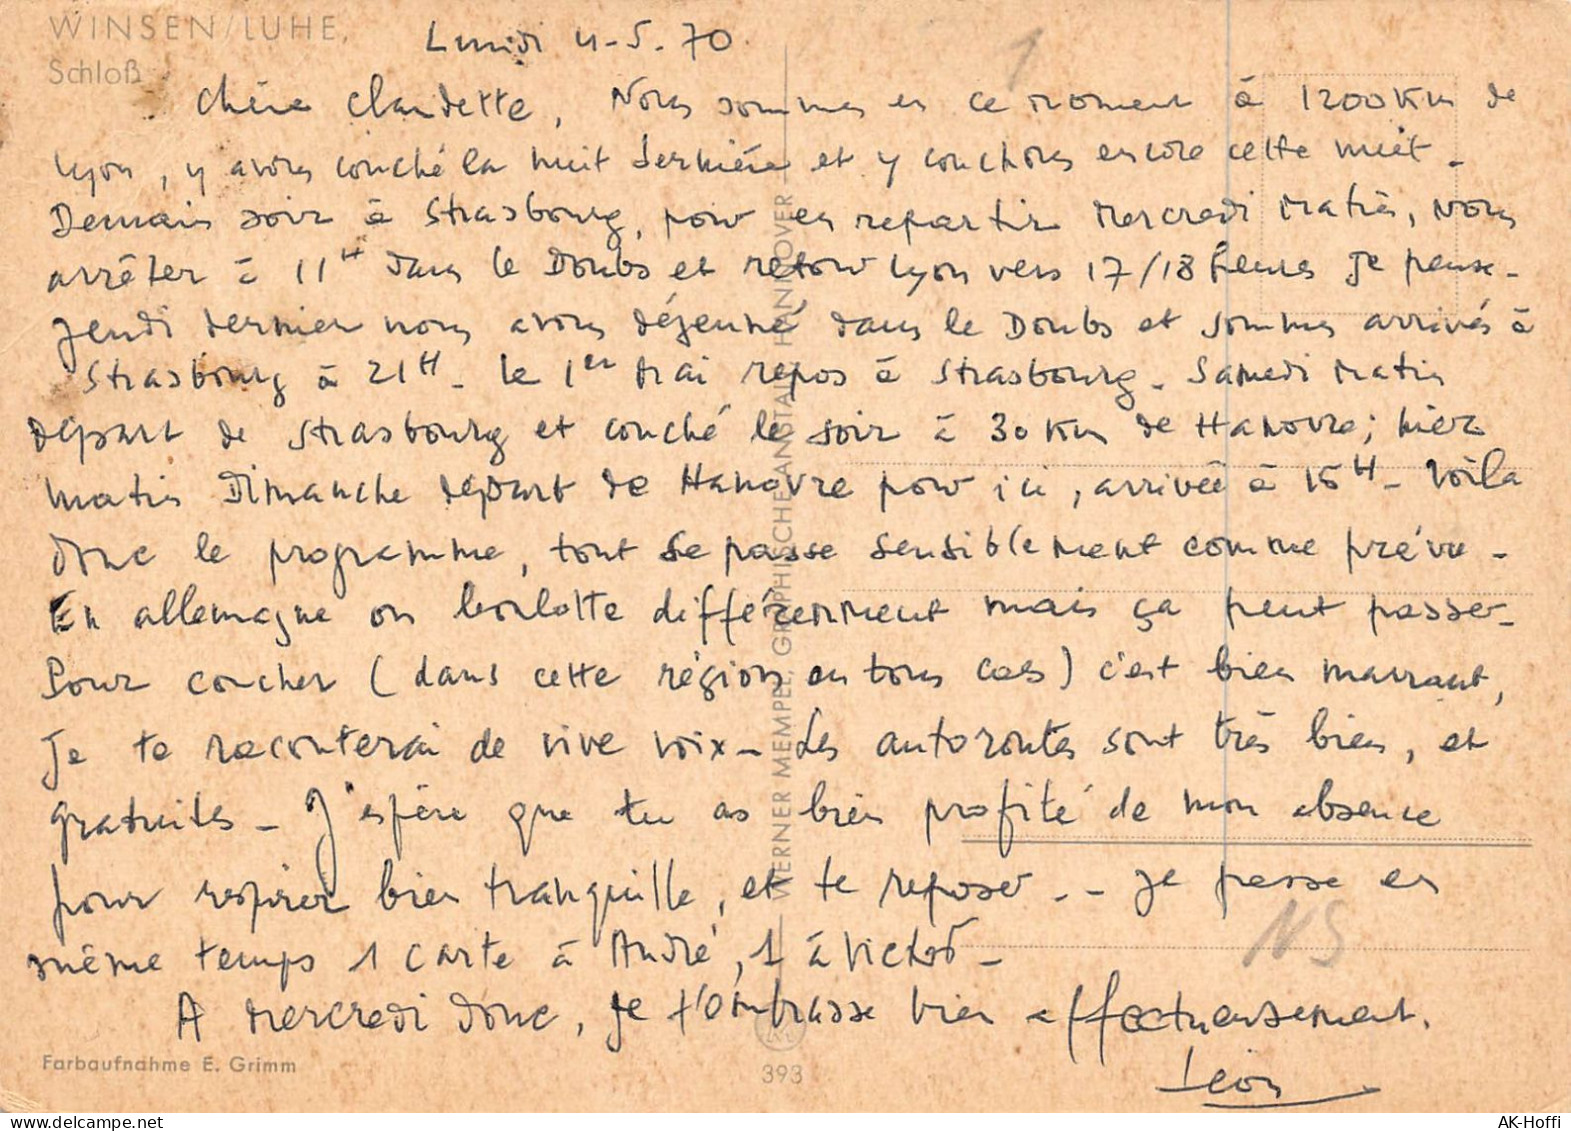 WINSEN/LUHE,
Schloß
Lundi 4-5-70.
Chère Claudette, Nous sommes en ce moment à 1200 Km de
Lyon, y avons couché la nuit dernière et y couchons encore cette nuit.
Demain soir à Strasbourg, pour en repartir Mercredi Matin, nous
arrêter à 11H dans le Doubs et retour Lyon vers 17/18 heures je pense.
Jeudi dernier nous avons déjeuné dans le Doubs et sommes arrivés à
Strasbourg à 21H - le 1er Mai repos à Strasbourg. Samedi Matin
départ de Strasbourg et couché le soir à 30 Km de Hanovre; hier
matin Dimanche départ de Hanovre pour ici, arrivée à 15H - Voila
donc le programme, tout se passe sensiblement comme prévu -
En allemagne on boulotte différemment mais ça peut passer -
Pour coucher (dans cette région en tous cas) c'est bien marrant,
Je te raconterai de vive voix - Les autoroutes sont très bien, et
gratuites - J'espère que tu as bien profité de mon absence
pour respirer bien tranquille, et te reposer -- Je pense en
même temps 1 carte à André, 1 à Victor -
A Mercredi donc, je t'embrasse bien affectueusement.
Léon
WERNER MEMPEL, GRAPHISCHE ANSTALT, HANNOVER
1
NS
Farbaufnahme E. Grimm
393
AK-Hoffi